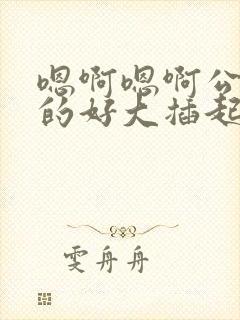 嗯啊嗯啊公
的好大插起
雯舟舟